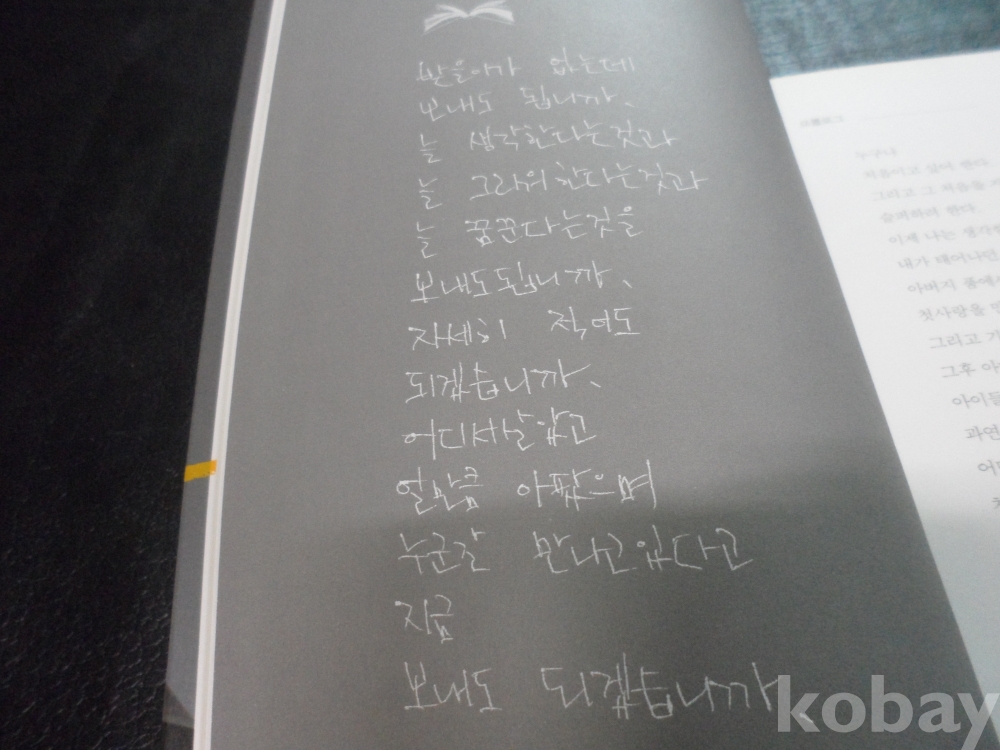 받을이가 없는데
보내도 됩니까.
늘 생각한다는것과
늘 그리워한다는것과
늘 꿈꾼다는것을
보내도됩니까.
자세히 적어도
되겠습니까.
어디서살았고
얼만큼 아팠으며
누군갈 만나고있다고
지금
보내도 되겠습니까.
프롤로그
누구나
처음이고 싶어 한다
그리고 그 처음을
한다.
이제 나는
내가 태어나던
아버지
첫사랑을
그리고
그후
아이들
과연
kobay